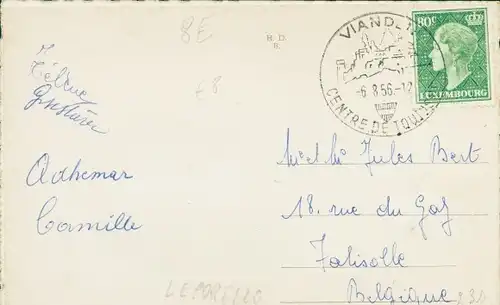 8E
B.D.
B.
VIANDEN
-6.8.56.-12
CENTRE DE TOURI
80c
LUXEMBOURG
Hélène
Adhemar
Camille
M et Me Jules Bert
18. rue du Gaz
Jalisolle
Belgique